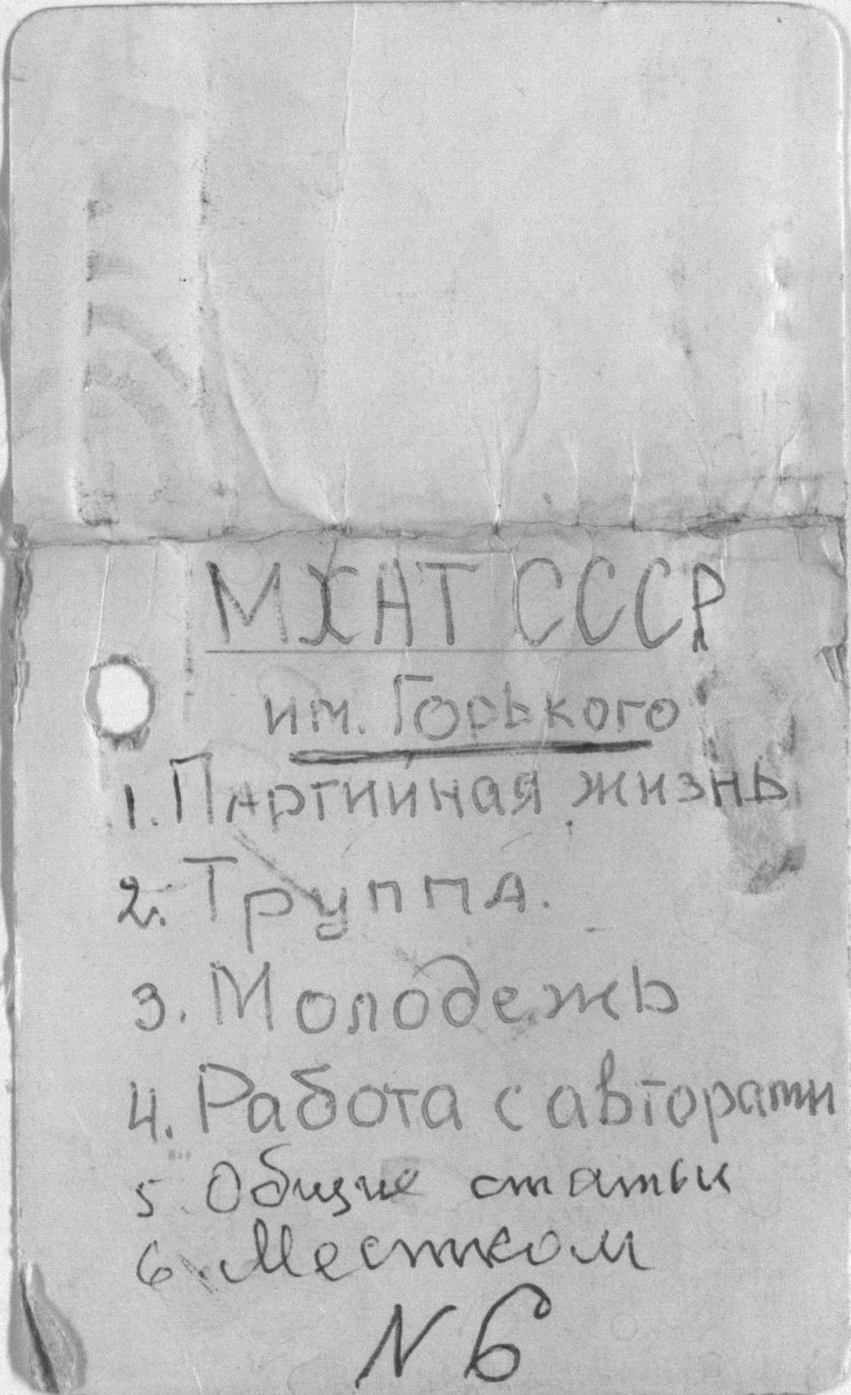 МХАТ СССР
им. Горького
1. Партийная жизнь
2. Труппа.
3. Молодежь
4. Работа с авторами
5 Общие статьи
6. Местком
N 6